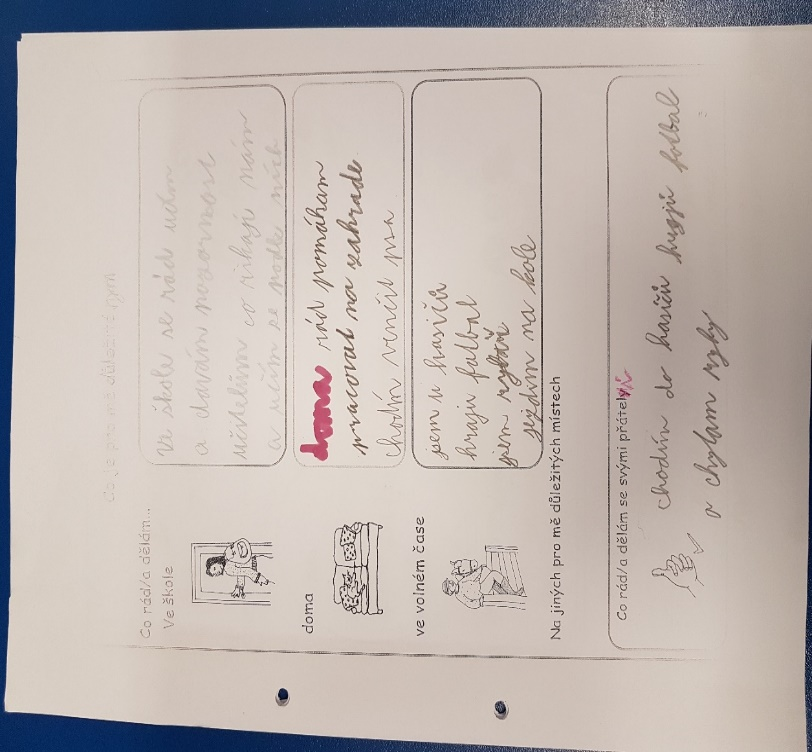 Co je pro mě důležité nyní
Co rád/a dělám...
Ve škole
ve škole se rád učím
a dávám pozornost
učitelům co říkají nám
a učím se podle
doma
doma rád pomáham
pracovat na zahrade
chodím venčit psa
ve volném čase
jsem u hasičů
hraju fotbal
jsem rybář
jezdím na kole
Na jiných pro mě důležitých místech
Co rád/a dělám se svými přátely
chodím do hasičů hraju fotbal
a chytam ryby